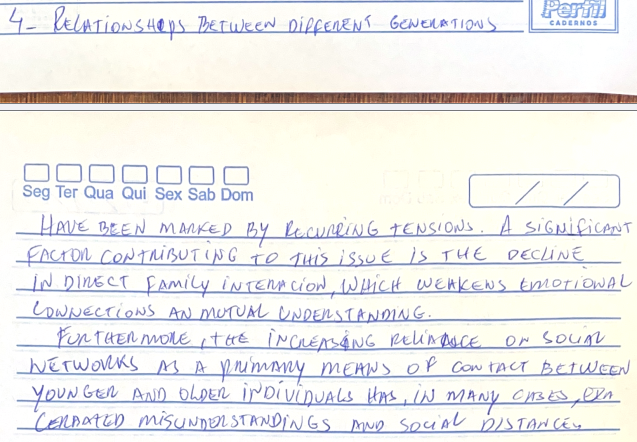 4- RELATIONSHIPS BETWEEN DIFFERENT GENERATIONS
Perfil
CADERNOS
Seg Ter Qua Qui Sex Sab Dom
HAVE BEEN MARKED BY RECURRING TENSIONS. A SIGNIFICANT
FACTOR CONTRIBUTING TO THIS ISSUE IS THE DECLINE
IN DIRECT FAMILY INTERACION, WHICH WEAKENS EMOTIONAL
CONNECTIONS AN MUTUAL UNDERSTANDING.
FURTHERMORE, THE INCREASING RELIANCE ON SOCIAL
NETWORKS AS A PRIMARY MEANS OF CONTACT BETWEEN
YOUNGER AND OLDER INDIVIDUALS HAS, IN MANY CASES,
MISUNDERSTANDINGS AND SOCIAL DISTANCE.